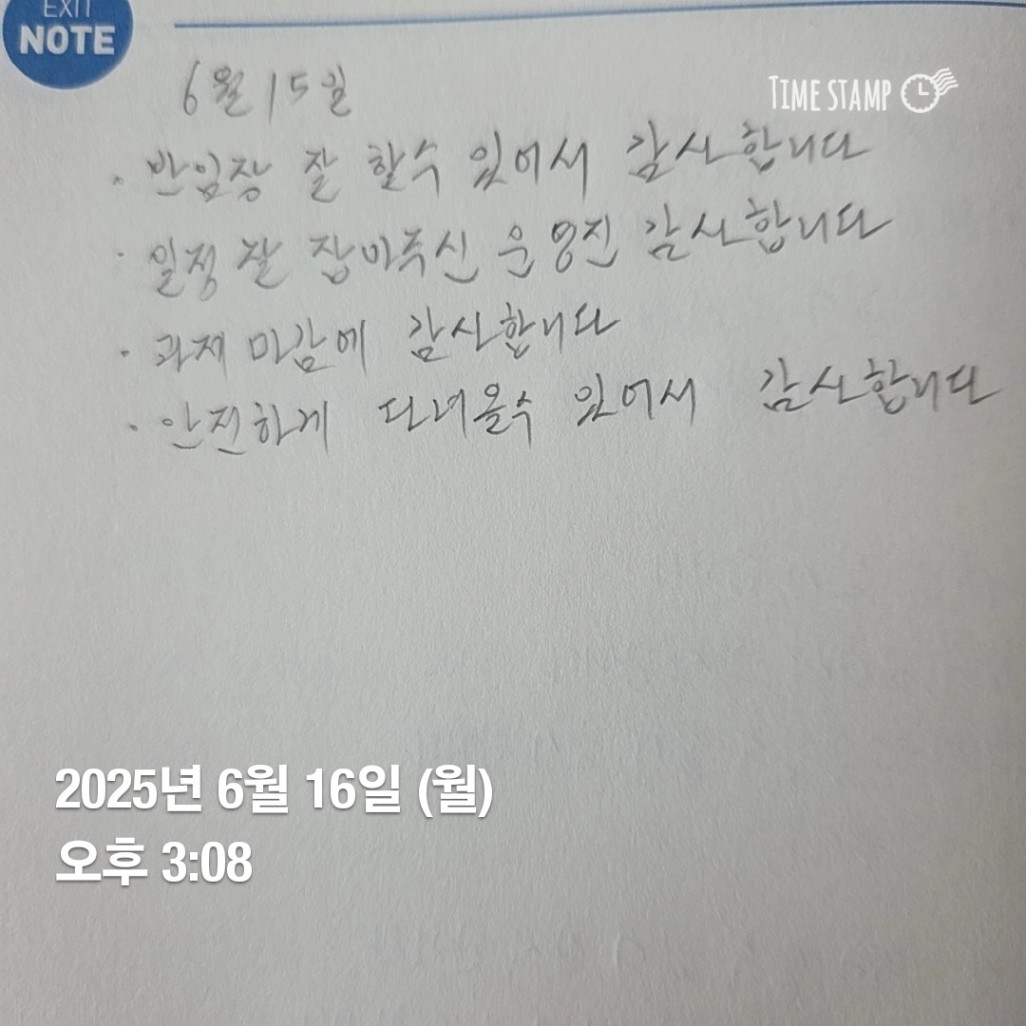 EXIT
NOTE
TIME STAMP
6월 15일
· 반임장 잘 할수 있어서 감사합니다
· 일정 잘 잡아주신 운영진 감사합니다
· 과제 마감에 감사합니다
· 안전하게 다녀올수 있어서 감사합니다
2025년 6월 16일 (월)
오후 3:08